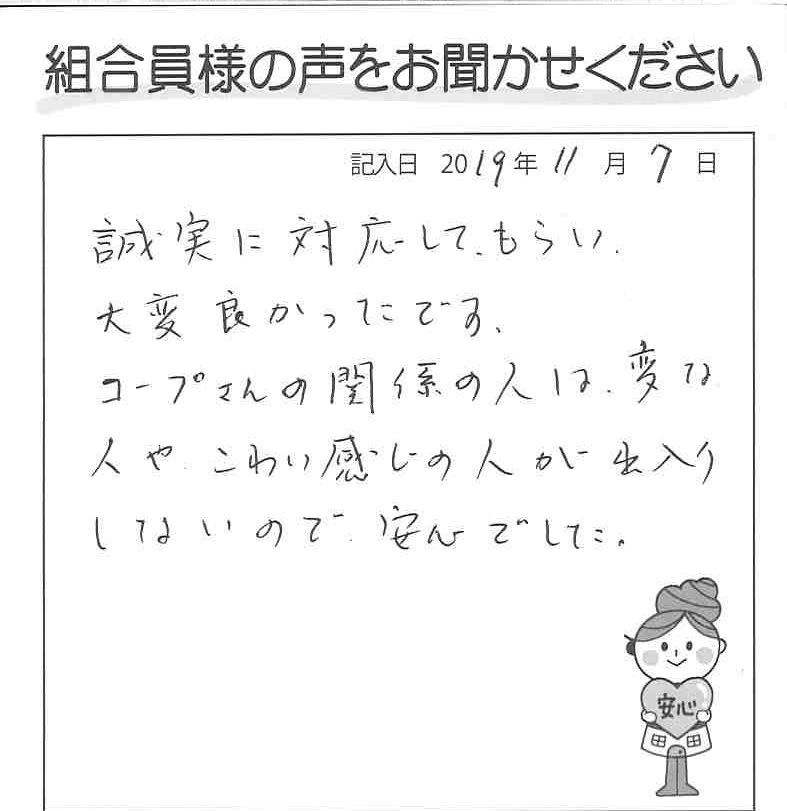 組合員様の声をお聞かせください
記入日 2019年 11月 7日
誠実に対応して、もらい、
大変良かったです、
コープさんの関係の人は、変な
人や、こわい感じの人が出入り
しないので、安心でした。
安心